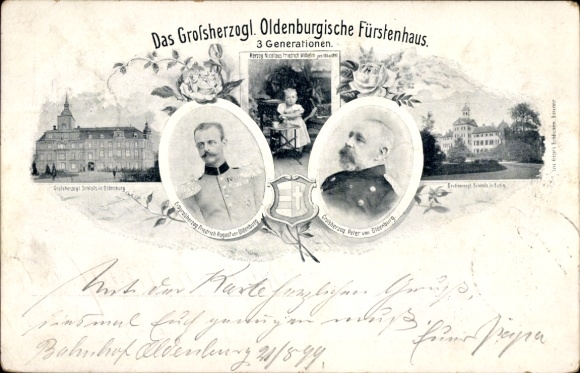 Das Grofsherzogl. Oldenburgische Fürstenhaus.
3 Generationen.
Herzog Nicolaus Friedrich Wilhelm
Grofsherzogl. Schlofs in Oldenburg
Erbgrofsherzog Friedrich August von Oldenburg.
Grofsherzog Peter von Oldenburg.
Grofsherzogl. Schlofs in Eutin.
Mit der Karte herzlichen Gruß,
diesmal Euch genügen muß
Euer Papa
Bahnhof Oldenburg 21/8 99.